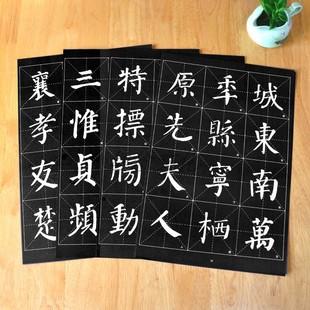 城東南萬
秊縣寧栖
原先夫人
特摽牓動
三惟貞頻
襄孝友楚